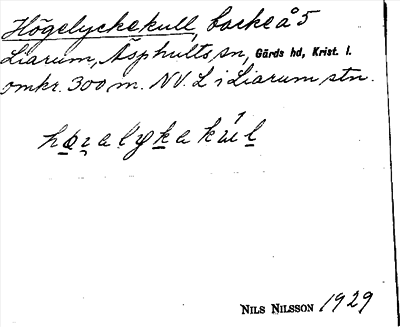 Högelyckekull, backe å 5
Liarum, Äsphults sn, Gärds hd, Krist. l.
omkr. 300 m. NV. L i Liarum stn.
NILS NILSSON 1929